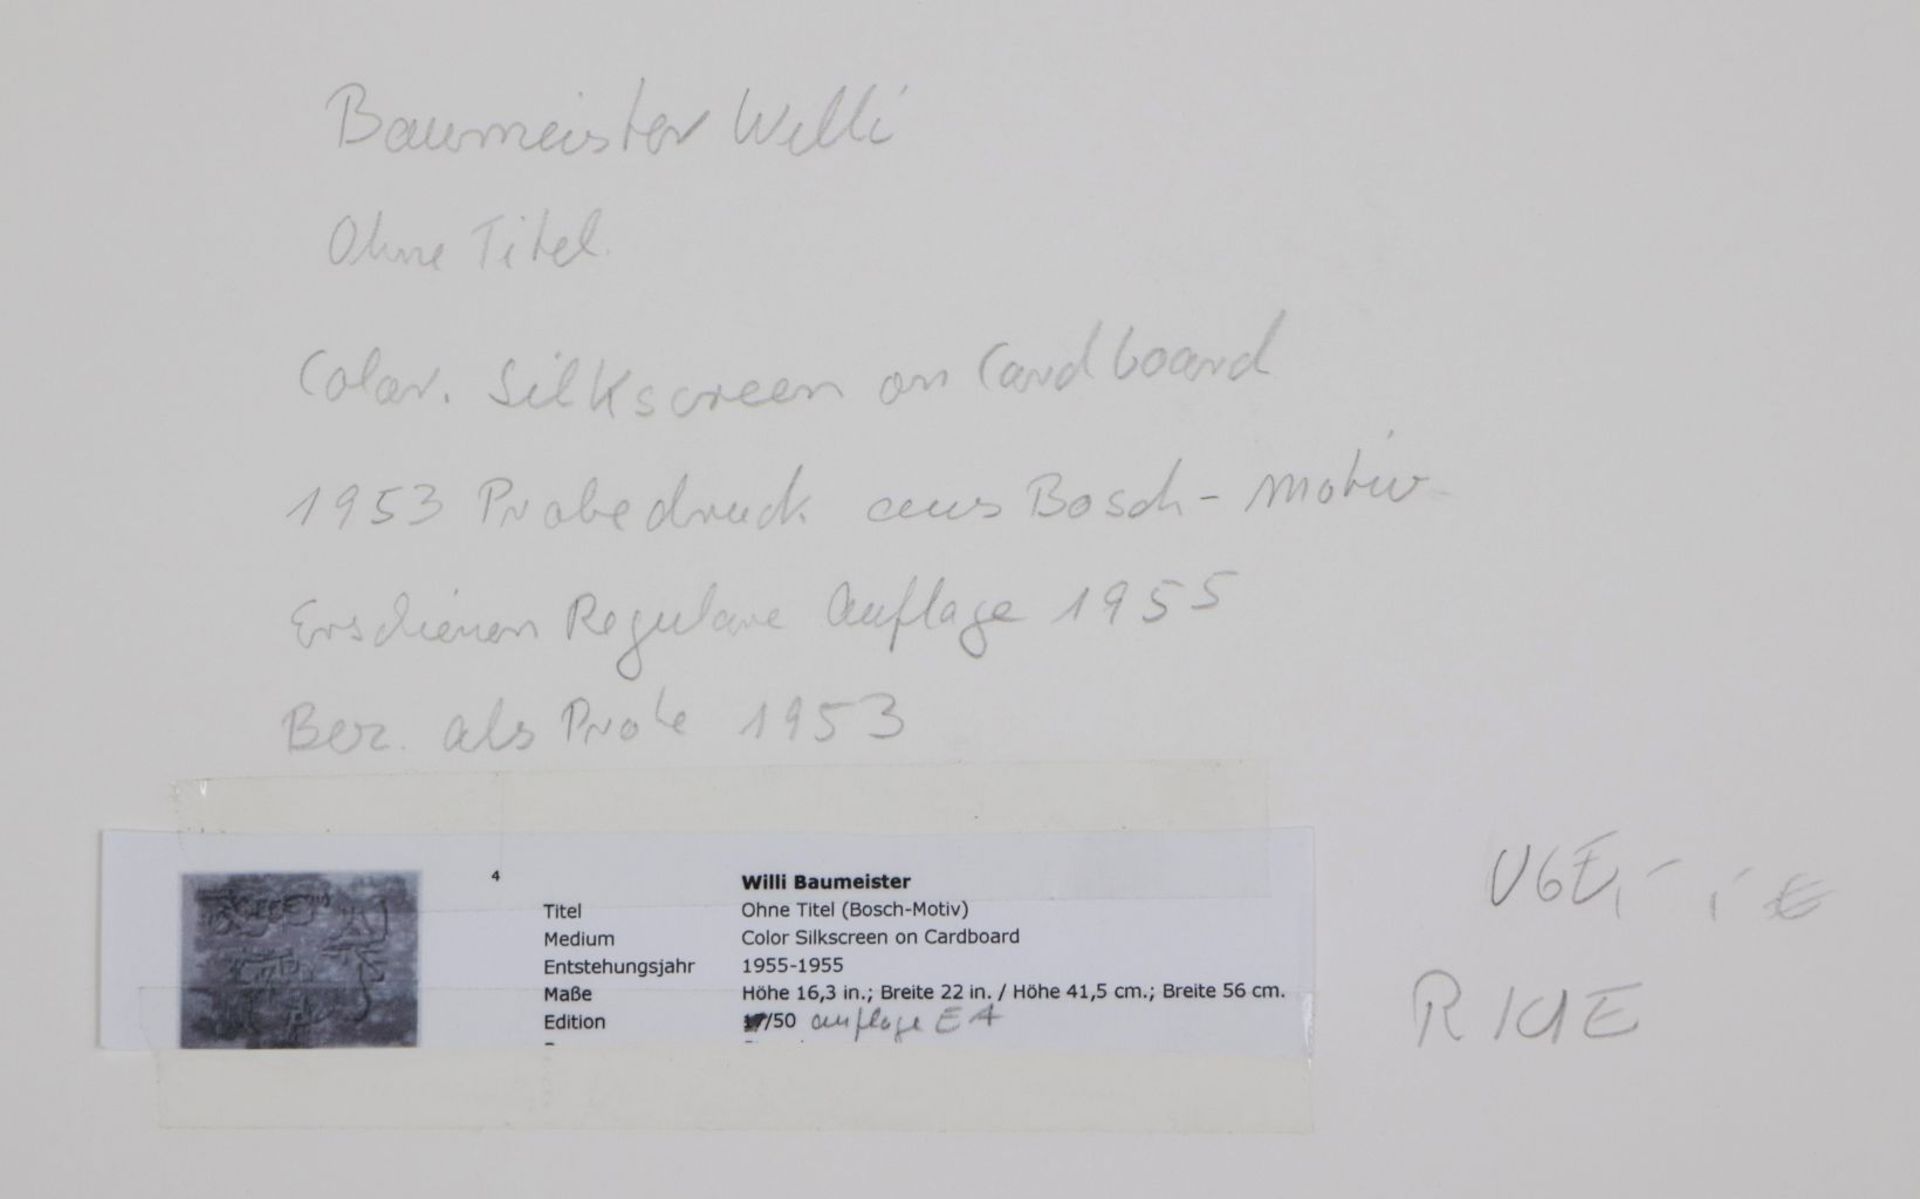 Baumeister Willi
Ohne Titel
Color. Silkscreen on Cardboard
1953 Probedruck aus Bosch-Motiv
Erschienen Regulare Auflage 1955
Bez. als Probe 1953
4
Willi Baumeister
Titel Ohne Titel (Bosch-Motiv)
Medium Color Silkscreen on Cardboard
Entstehungsjahr 1955-1955
Maße Höhe 16,3 in.; Breite 22 in. / Höhe 41,5 cm.; Breite 56 cm.
Edition /50 auflage EA